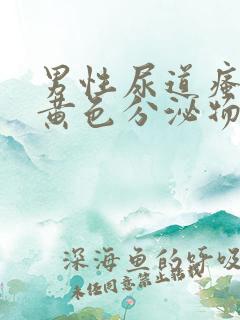 男性尿道瘙
黄色分泌物
深海鱼的呼吸
未经同意禁止转载